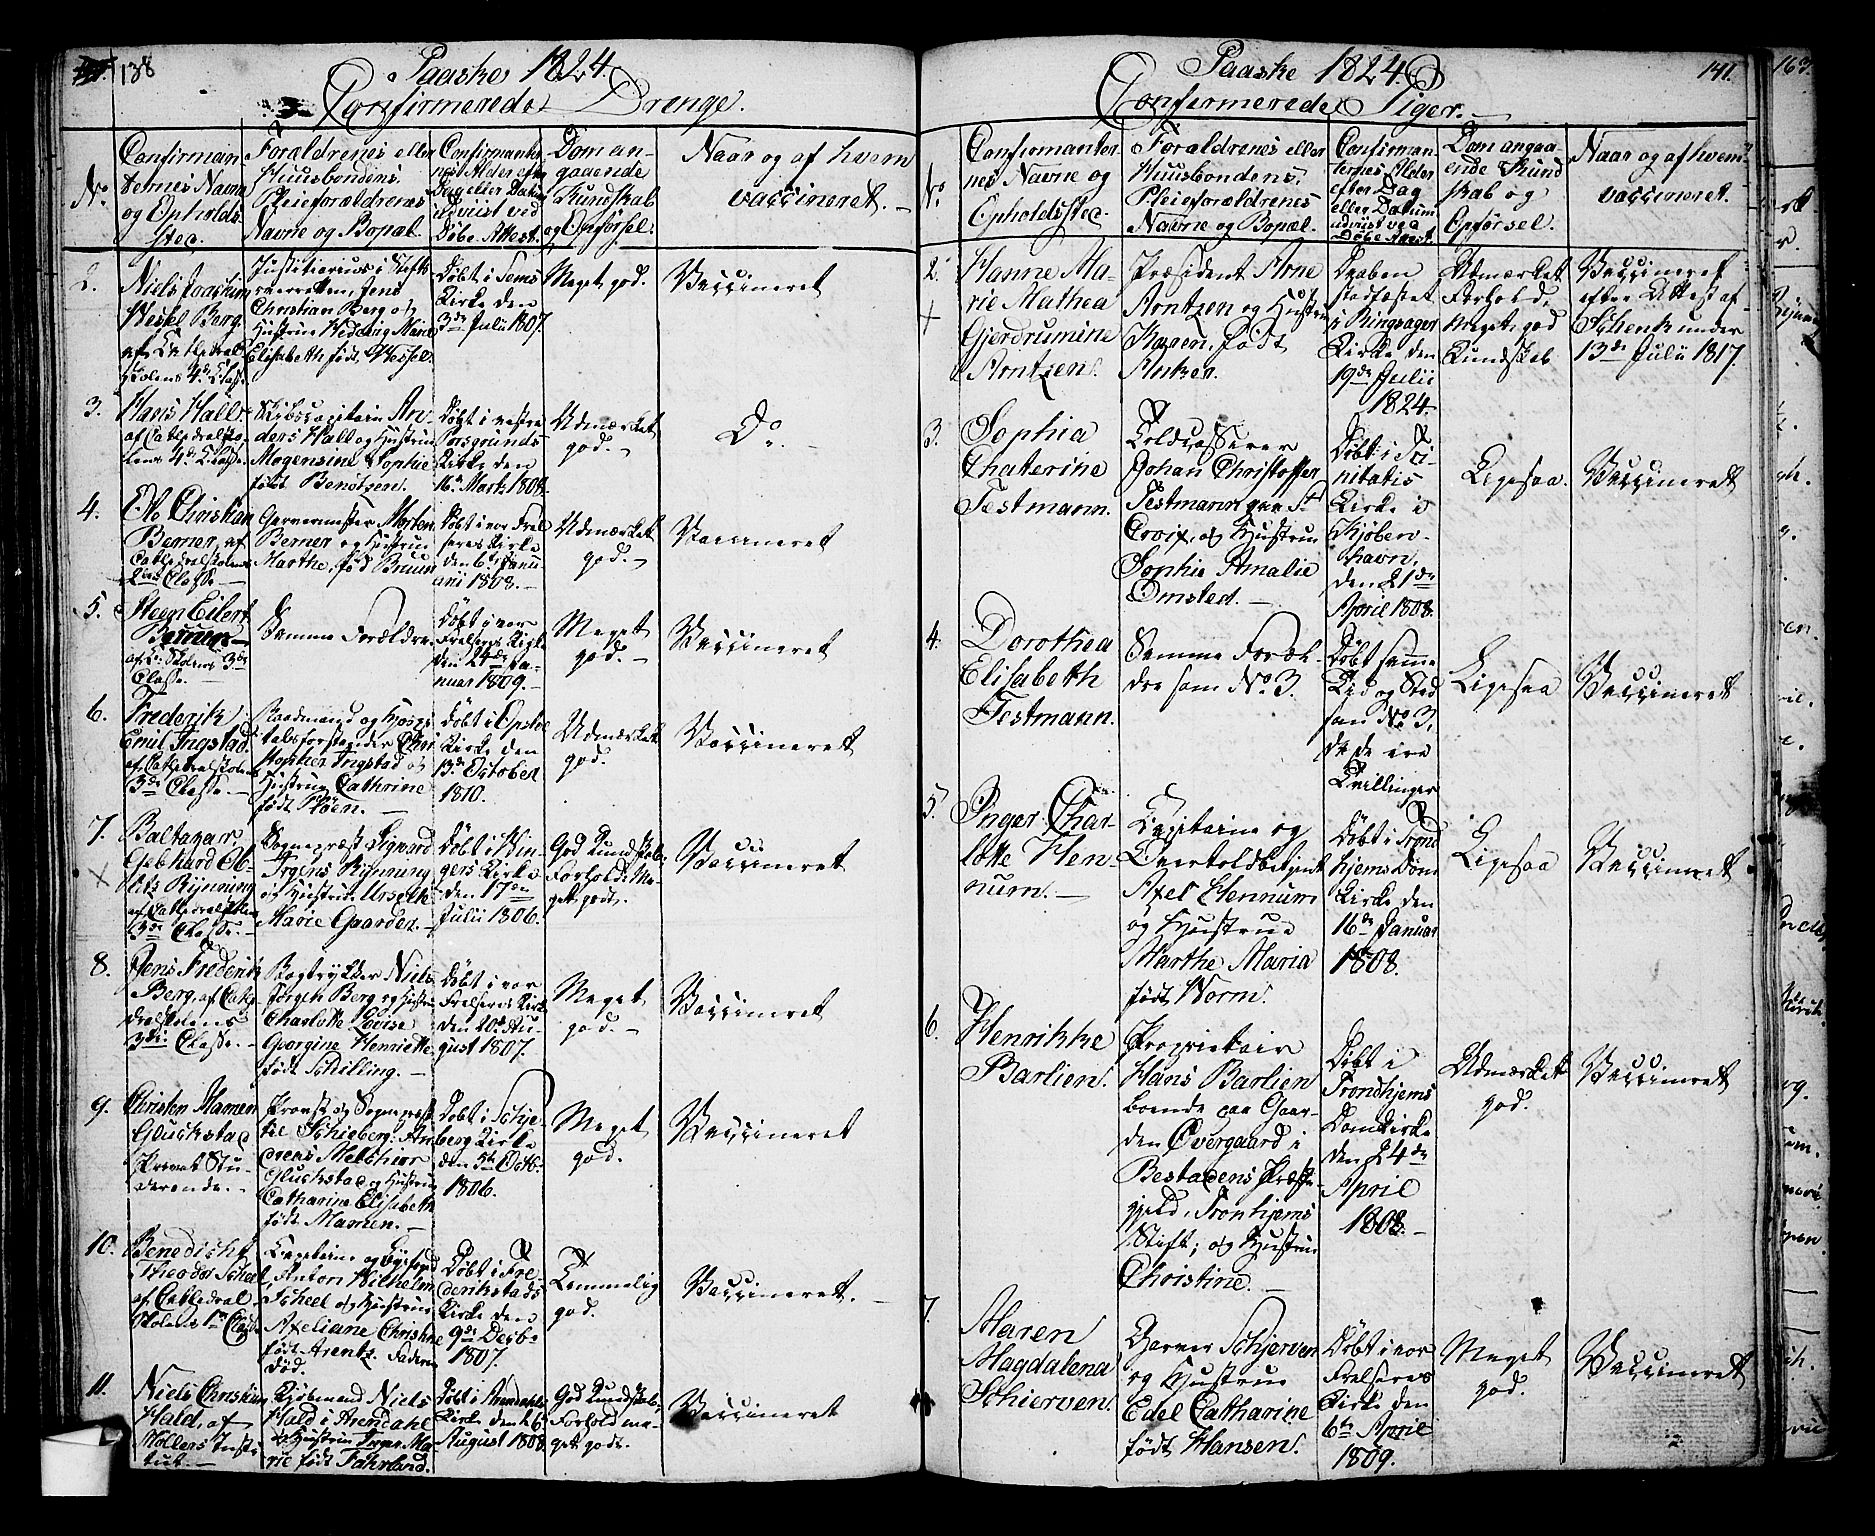 138
Paaske 1824.
Confirmerede Drenge.
No.
Confirman
ternes Navne
og Opholds
sted.
Forældrenes eller
Huusbondens,
Pleieforældrenes
Navne og Bopæl.
Confirmanter
nes Alder efter
Dag eller Datum
udviist ved
Døbe Attest.
Dom an-
gaaende
Kundskab
og Opførsel.
Naar og af hvem
vaccineret. -
2.
Niels Joachim
Wessel Berg
af Cathedral
skolens 4de Classe
Justitiarius i Stifts
overretten, Jens
Christian Berg og
Hustrue Marie
Elisabeth født Wessel.
Døbt i Sems
Kirke den
3die Julii 1807.
Meget god.
Vaccineret
3.
Hans Hall
af Cathedralsko-
lens 4de Classe.
Skibscapitain An-
ders Hall og Hustrue
Mogensine Sophie
født Bentzen.
Døbt i vestre
Porsgrunds
Kirke den
16de Marts 1808.
Udmærket
god. -
Do. -
4.
Berner, af
Cathedralskolens
Classe -
Garvermester Morten
Berner og Hustrue
Marthe, fød Bruun
Døbt i vor Frel
sers Kirke
den 6te Janu
arii 1808. -
Udmærket
god. -
Vaccineret
5.
Steen Eilert
Berner -
af C. Skolens 3die
Classe. -
Samme Forældre
Døbt i vor
Frelsers Kirke
den 24de Ja-
nuar 1809. -
Meget
god. -
Vaccineret
6.
Frederik
Emil Ingstad
af Cathedralskolens
3die Classe. -
Raadmand og Hospi
talsforstander Chri
stopher Ingstad og
Hustrue Cathrine
født Pløen. -
Døbt i
Kirke den
13de October
1810.
Udmærket
god.
Vaccineret
7.
Baltazar
Gebhard Ob-
litz Rynning
af Cathedralskolen
3die Classe. -
Sognepræst Sigvard
Irgens Rynning
og Hustrue Urseth
Marie Gaarder. -
Døbt i Vin-
gers Kirke
den 17en
Julii 1806.
God Kundskab.
Forhold: Me-
get godt.
Vaccineret
8.
Jens Frederik
Berg, af Cathe-
dralskolens
3die Classe. -
Bogtrykker Niels
Jørgen Berg og Hustrue
Charlotte Lovise
Georgine Henriette
født Schilling. -
Døbt i vor
Frelsers Kirke
den 20de Au-
gust 1807.
Meget
god. -
Vaccineret
9.
Christen Mamen
Gluckstad
Privat Stu-
derende. -
Provst og Sognepræst
til Schieberg: An
dreas Melchior
Gluckstad og Hustrue
Catharine Elisabeth
født Mamen. -
Døbt i Schje-
berg Kirke
den 5te Octb.
1806.
Meget
god.
Vaccineret
10.
Benedicht
Theodor Scheel
af Cathedral
skolens 1ste Classe
Capitaine og Byefoged
Anton Wilhelm
Scheel og Hustrue
Axeliane Christine
født Arentz. Faderen
død.
Døbt i Fre-
derikstads
Kirke den
9de Decbr.
1807.
Temmelig
god.
Vaccineret. -
11.
Niels Christian
Hald, af
Møllers Insti-
tut. -
Kjøbmand Niels
Hald i Arendahl
og Hustrue Inger Ma
rie født Fahrland.
Døbt i Arendahls
Kirke den 26
August 1808
God Kundskab.
Forhold me-
get godt.
Vaccineret
141
Paaske 1824.
Confirmerede Piger. -
No.
Confirmanter
nes Navne og
Opholdssted.
Forældrenes eller
Huusbondens,
Pleieforældrenes
Navne og Bopæl.
Confirman-
ternes Alder
efter Dag
eller Datum
udviist ved
Døbe Attest.
Dom angaa-
ende Kund
skab og
Opførsel.
Naar og af hvem
vaccineret.
2.
Hanne Ma-
rie Mathea
Gjerdrumine
Arntzen.
Præsident Arne
Arntzen og Hustrue
Karen, født
Anker.
Daaben
stadfæstet
i Ringsager
Kirke den
19de Julii
1824.
Udmærket
Forhold.
Meget god
Kundskab
Vaccineret
efter Attest af
Schenk under
13de Julii 1817.
3.
Sophia
Chaterine
Testmann.
Toldcasserer
Johan Christoffer
Testmann paa St.
Croix, og Hustrue
Sophie Amalie
Omsted. -
Døbt i Tri-
nitatis
Kirke i
Kjøben-
havn,
den 21de
April 1808.
Ligesaa.
Vaccineret
4.
Dorothea
Elisabeth
Testmann.
Samme Foræl-
dre som No 3.
Døbt samme
Tid og Sted
som No 3,
da de ere
Tvillinger
Ligesaa
Vaccineret
5.
Inger Char-
lotte Hen-
num. -
Capitaine og
Overtoldbetjent
Axel Hennum
og Hustrue
Marthe Maria
født Worm.
Døbt i Trond
hjems Dom
Kirke den
16de Januar
1808.
Ligesaa
Vaccineret
6.
Henrikke
Barlien.
Proprietair
Hans Barlien
boende paa Gaar-
den Overgaard i
Bestadens Præste-
gjeld, Tronhjems
Stift; og Hustrue
Christine. -
Døbt i
Trondhjems
Domkirke
den 24de
April
1808. -
Udmærket
god.
Vaccineret
7.
Maren
Magdalena
Schierven.
Garver Schjerven
og Hustrue
Edel Catharine
født Hansen.
Døbt i vor
Frelsers
Kirke den
6te April
1809.
Meget
god.
Vaccineret
163.